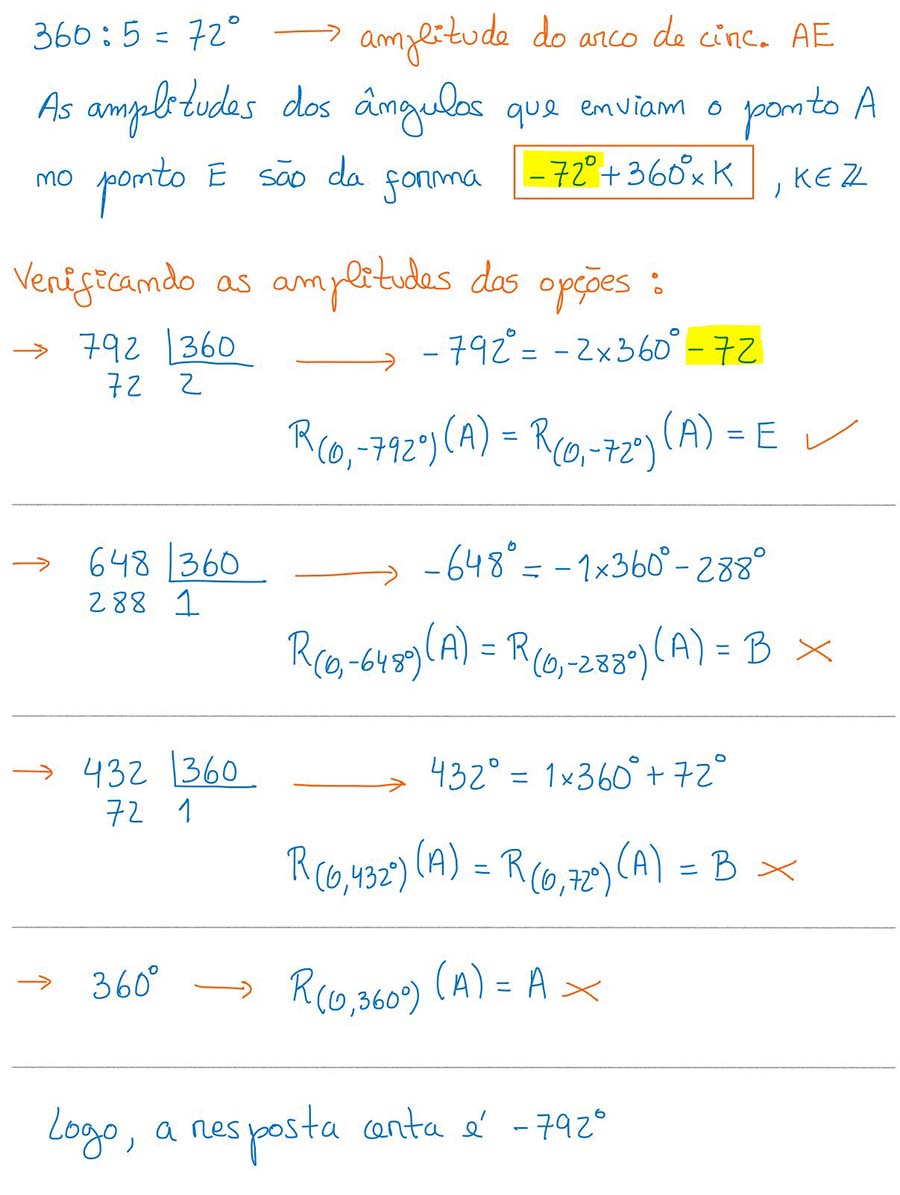 360 : 5 = 72° → amplitude do arco de circ. AE
As amplitudes dos ângulos que enviam o ponto A
no ponto E são da forma -72° + 360° × K , K ∈ ℤ
Verificando as amplitudes das opções :
→ 792 |360 → -792° = -2×360° -72
72 2
R(O,-792°)(A) = R(O,-72°)(A) = E ✓
→ 648 |360 → -648° = -1×360° - 288°
288 1
R(O,-648°)(A) = R(O,-288°)(A) = B ×
→ 432 |360 → 432° = 1×360° + 72°
72 1
R(O,432°)(A) = R(O,72°)(A) = B ×
→ 360° → R(O,360°)(A) = A ×
Logo, a resposta certa é -792°